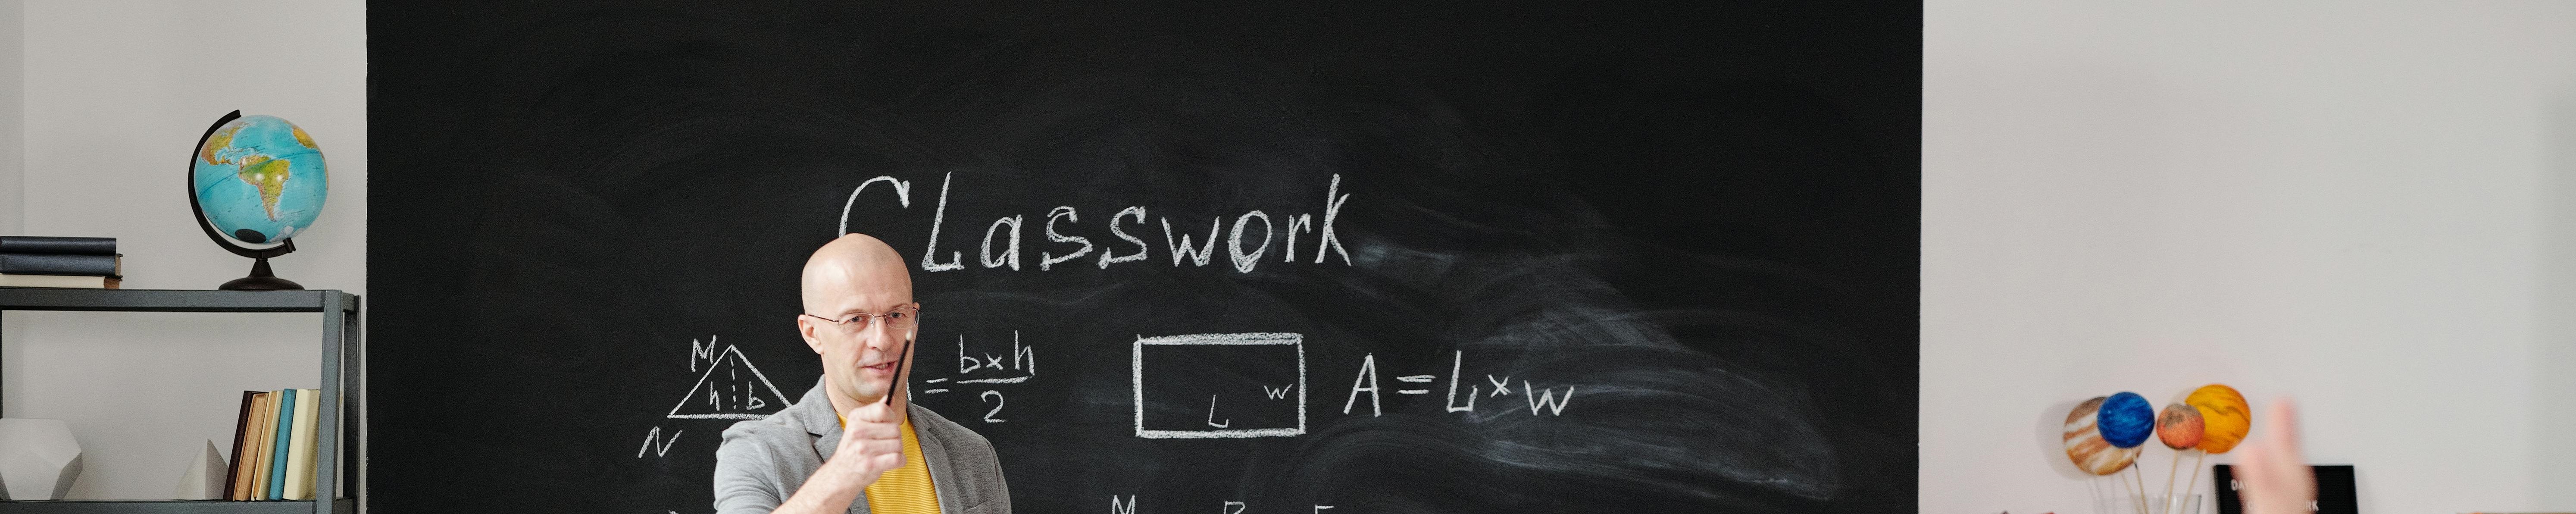 CLasswork
M
h b
= b×h
2
L w
A = L×w
N